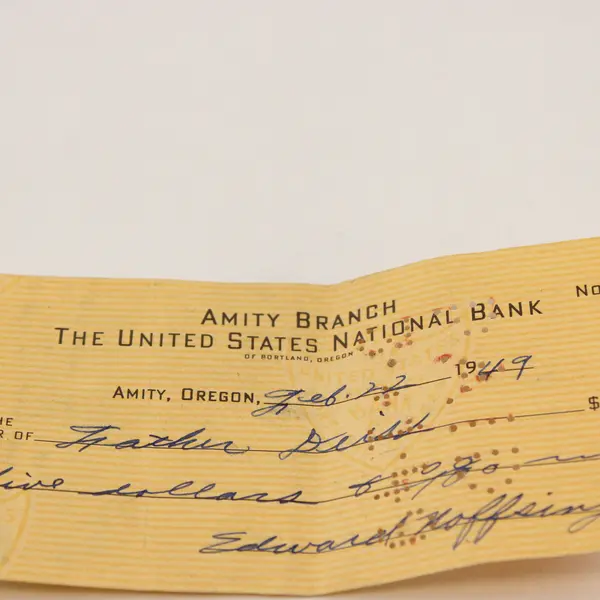 AMITY BRANCH
NO
THE UNITED STATES NATIONAL BANK
OF PORTLAND, OREGON
AMITY, OREGON, Feb. 22 1949
HE
R OF Father $
five dollars &
Edward Hoffsing